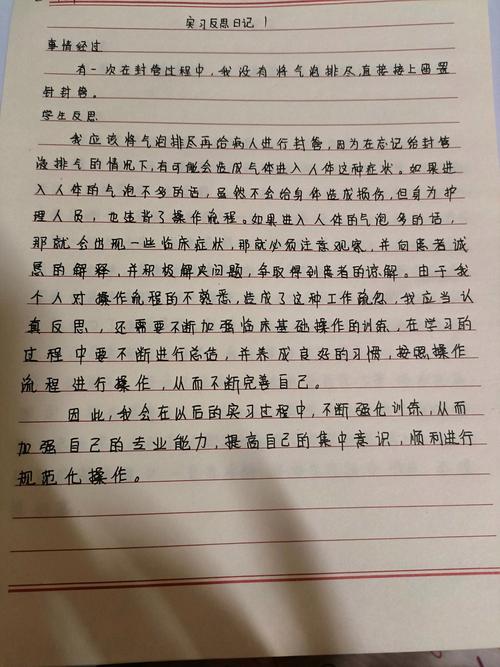 实习反思日记 1
事情经过
有一次在封管过程中，我没有将气泡排尽，直接接上留置
针封管。
学生反思
我应该将气泡排尽再给病人进行封管，因为在忘记给封管
液排气的情况下，有可能会造成气体进入人体这种症状。如果进
入人体的气泡不多的话，虽然不会给身体造成损伤，但身为护
理人员，也违背了操作流程。如果进入人体的气泡多的话，
那就会出现一些临床症状，那就必须注意观察，并向患者诚
恳的解释，并积极解决问题，争取得到患者的谅解。由于我
个人对操作流程的不熟悉，造成了这种工作疏忽，我应当认
真反思，还需要不断加强临床基础操作的训练，在学习的
过程中要不断进行总结，并养成良好的习惯，按照操作
流程进行操作，从而不断完善自己。
因此，我会在以后的实习过程中，不断强化训练，从而
加强自己的专业能力，提高自己的集中意识，顺利进行
规范化操作。